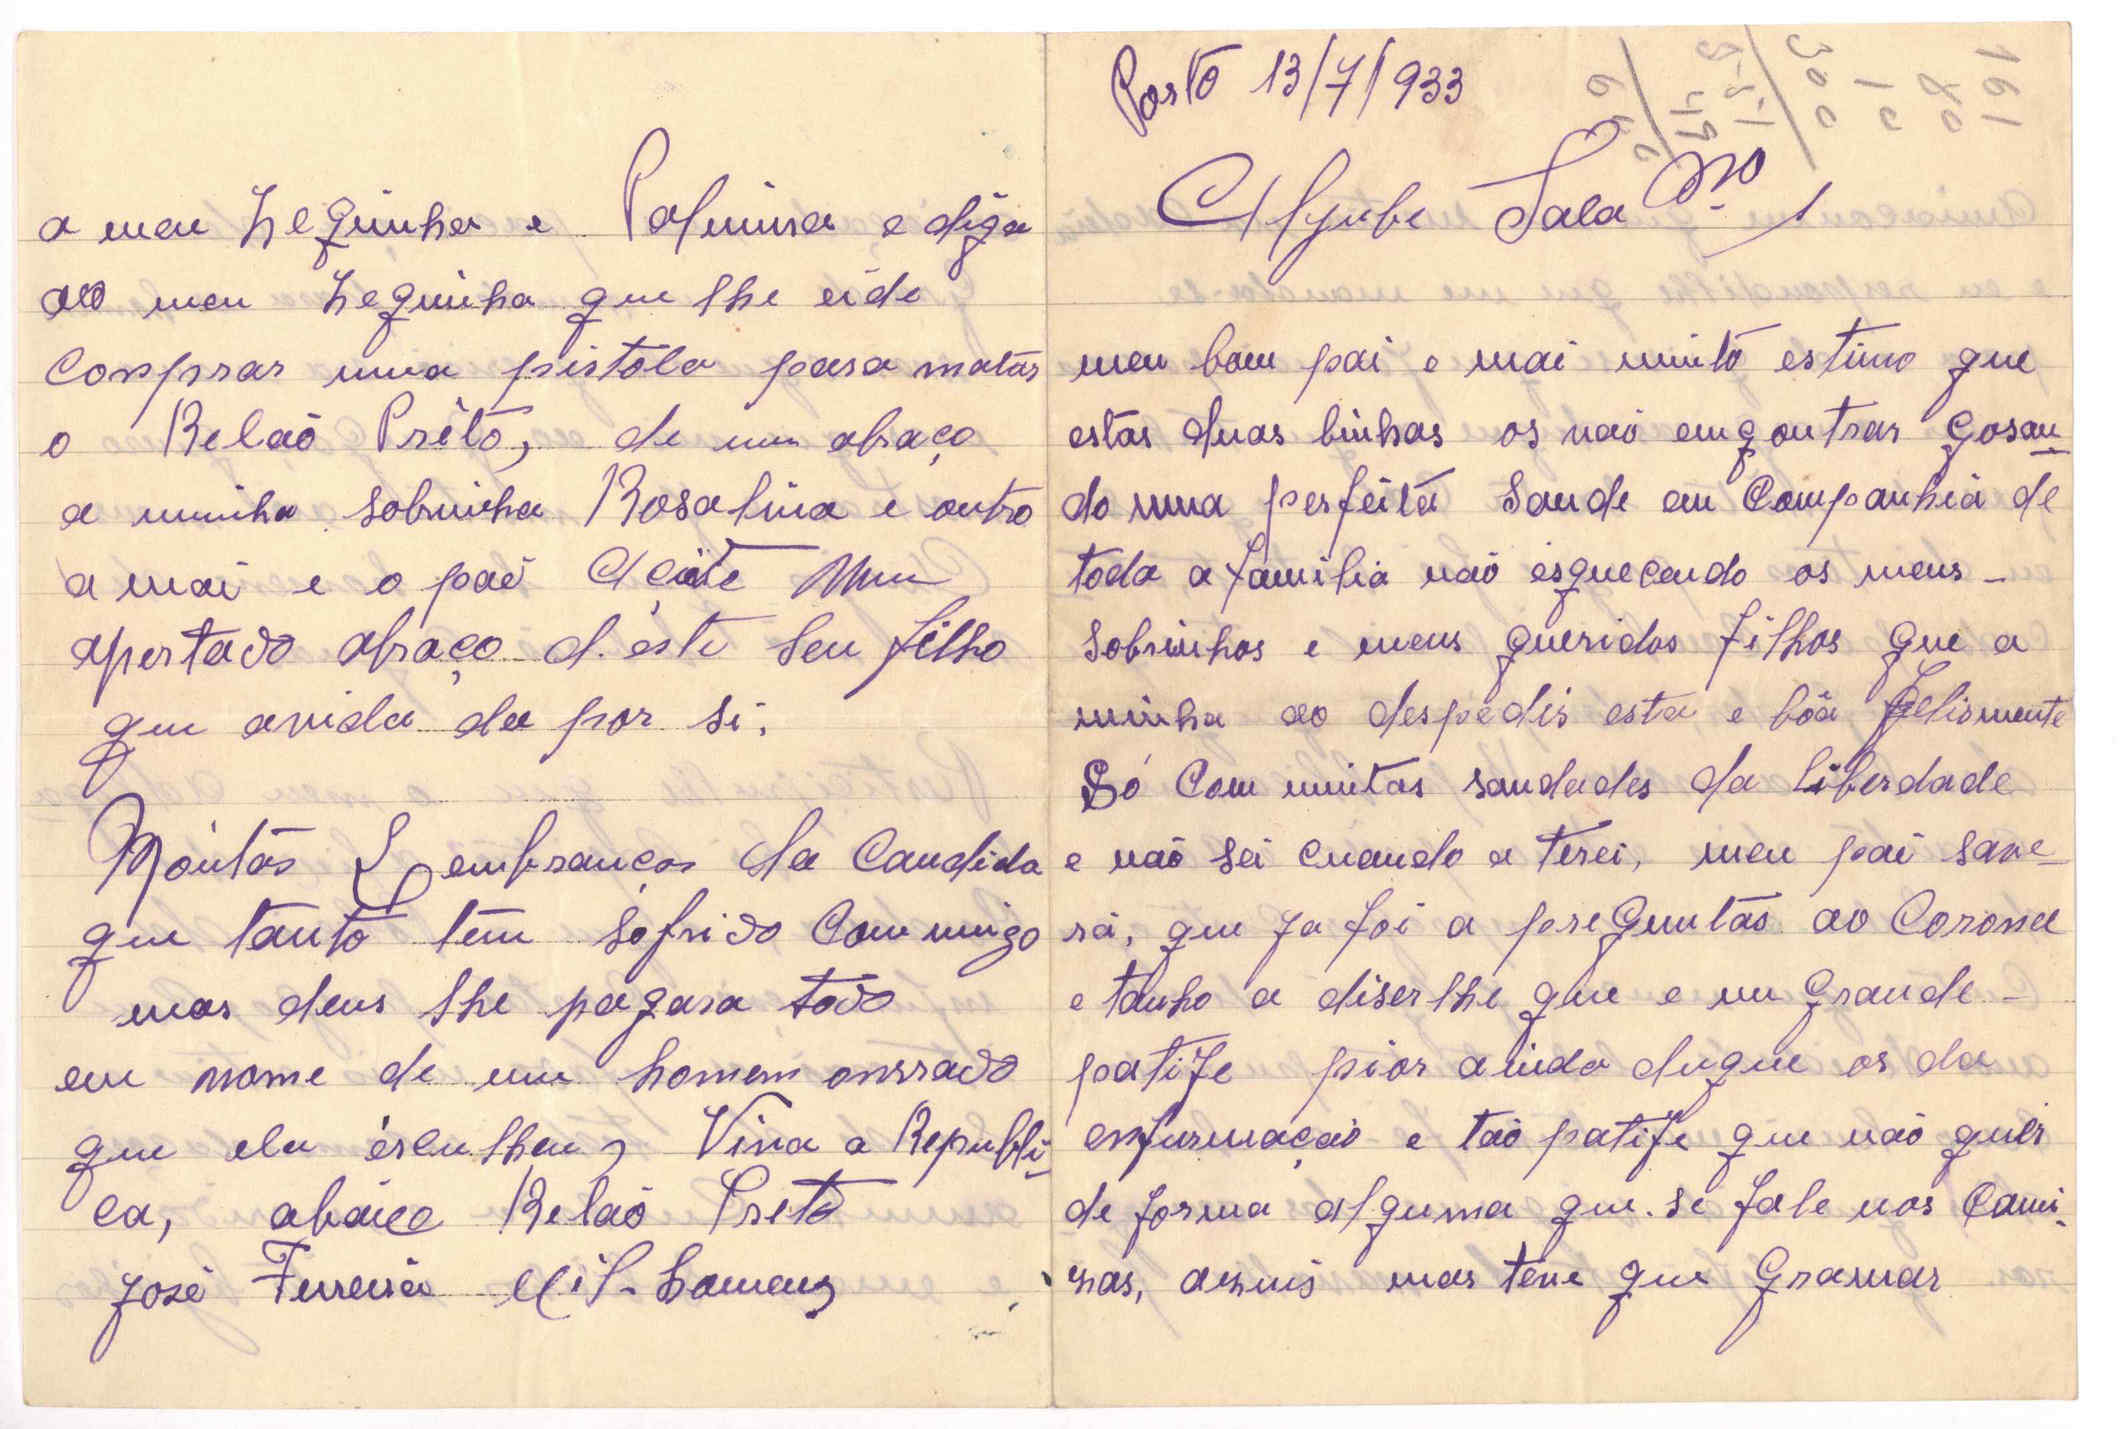 Porto 13/7/933
Aljube Sala
meu bom pai e mai muito estimo que
estas duas linhas os vaõ emgontrar Gosan-
do uma perfeita Saude em Companhia de
toda a familia naõ esquecendo os meus -
sobrinhos e meus queridos filhos que a
minha ao despedir esta, e bôa Felismente
Só Com muitas saudades da liberdade
e naõ sei cuando a terei, meu pai save-
rá, que ja foi a preGuntas ao Coronel
e tanho a diserlhe que e um grande -
patife pior ainda duque os da
enfurmaçaõ e taõ patife que naõ quer
de forma alguma que se fale nos Cami-
sas, mas teve que Gramar
a meu Zeguinha e Palmira e diga
ao meu Zeguinha que lhe eide
Comprar uma pistola para matar
o Relaõ Prêto, de um abraço
a minha sobrinha Rosalina e outro
a mai e o pai aceite um
apertado abraço d'este seu filho
que avida da por si.
Moutas Lembranças da Candida
que tanto tem sofrido Com migo
mas deus lhe pagara todo
em nome de um homem onrrado
que ela esculheu, Viva a Republi-
ca, abaico Relaõ Preto
José Ferreira Mil-homens
161
80
10
300